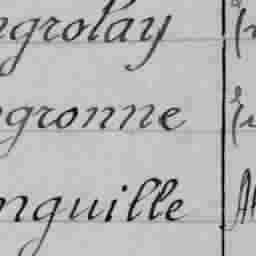 egrolay
egronne
nguille